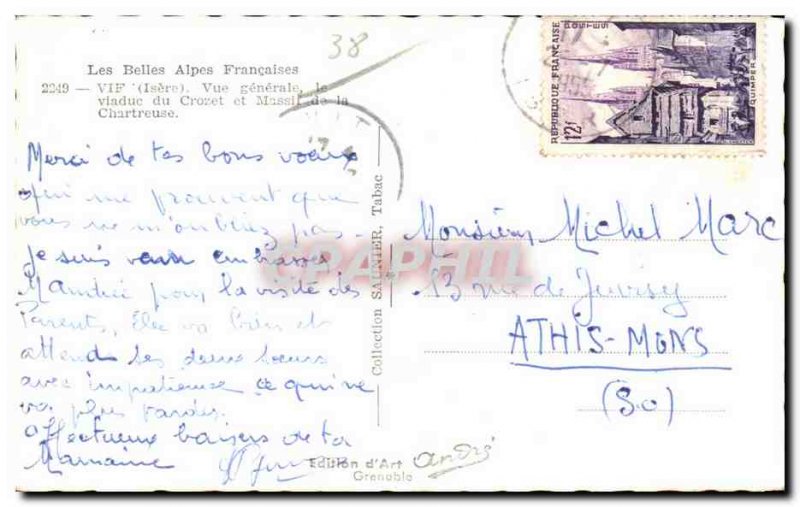 38
Les Belles Alpes Françaises
2249 — VIF (Isère). Vue générale, le
viaduc du Crozet et Massif de la
Chartreuse.
Merci de tes bons voeux
qui me prouvent que
vous ne m'oubliez pas -
je suis embrasser
pour la visite des
Parents, Elle va bien et
attend les deux soeurs
avec impatience ce qui ne
va plus tarder.
Affectueux baisers de ta
Marraine
Collection SAUNIER, Tabac
Edition d'Art andré
Grenoble
REPUBLIQUE FRANÇAISE
POSTES
12f
QUIMPER
Monsieur Michel Marc
13 rue de Juvisy
ATHIS-MONS
(S.O)
CPAPHIL